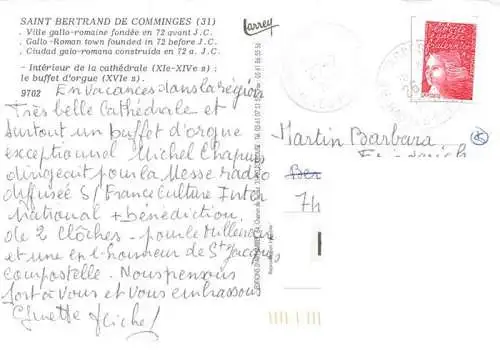 SAINT BERTRAND DE COMMINGES (31)
. Ville gallo-romaine fondée en 72 avant J.C.
. Gallo-Roman town founded in 72 before J.C.
. Ciudad gaio-romana construida en 72 a. J.C.
- Intérieur de la cathédrale (XIe-XIVe s) :
le buffet d'orgue (XVIe s).
9702
En vacances dans la région
Très belle Cathédrale et
surtout un buffet d'orgue
exceptionnel Michel Chapuis
dirigeait pour la Messe radio
diffusée S/ France Culture Inter
National + bénédiction
de 2 Clôches - pour le Millenaire
et une en l'honneur de St Jacques
Compostelle. Nous pensons
fort à vous et vous embrassons
Ginette Michel
Larrey
Martin Barbara
Friedrich
Ber
7h